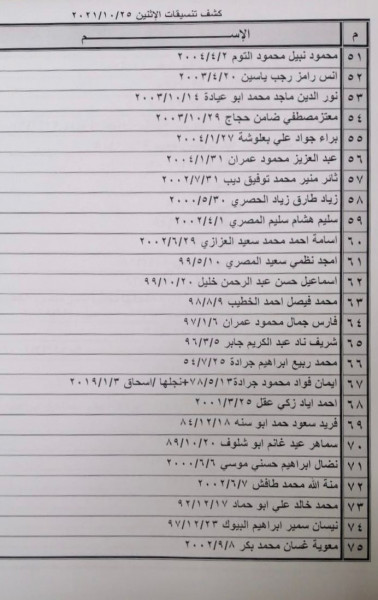 كشف تنسيقات الإثنين ٢٠٢١/١٠/٢٥
م الإســـم
٥١ محمود نبيل محمود التوم ٢٠٠٤/٤/٢
٥٢ انس رامز رجب ياسين ٢٠٠٣/٤/٢٠
٥٣ نور الدين ماجد محمد ابو عيادة ٢٠٠٣/١٠/١٤
٥٤ معتزمصطفي ضامن حجاج ٢٠٠٣/١٠/٢٩
٥٥ براء جواد علي بعلوشة ٢٠٠٤/١/٢٧
٥٦ عبد العزيز محمود عمران ٢٠٠٤/١/٣١
٥٧ ثائر منير محمد توفيق ديب ٢٠٠٢/٧/٣١
٥٨ زياد طارق زياد الحصري ٢٠٠٠/٥/٣٠
٥٩ سليم هشام سليم المصري ٢٠٠٢/٤/١
٦٠ اسامة احمد محمد سعيد العزازي ٢٠٠٢/٦/٢٩
٦١ امجد نظمي سعيد المصري ٩٩/٥/١٠
٦٢ اسماعيل حسن عبد الرحمن خليل ٩٩/١٠/٢٠
٦٣ محمد فيصل احمد الخطيب ٩٨/٨/٩
٦٤ فارس جمال محمود عمران ٩٧/١/٦
٦٥ شريف ناد عبد الكريم جابر ٩٦/٣/٥
٦٦ محمد ربيع ابراهيم جرادة ٥٤/٧/٢٥
٦٧ ايمان فواد محمود جرادة٧٨/٥/١٣+نجلها /اسحاق ٢٠١٩/١/٣
٦٨ احمد اياد زكي عقل ٢٠٠١/٣/٢٥
٦٩ فريد سعود حمد ابو سنه ٨٤/١٢/١٨
٧٠ سماهر عيد غانم ابو شلوف ٨٩/١٠/٢٠
٧١ نضال ابراهيم حسني موسي ٢٠٠٠/٦/٦
٧٢ منة الله محمد طافش ٢٠٠٢/٦/٧
٧٣ محمد خالد علي ابو حماد ٩٢/١٢/١٧
٧٤ نيسان سمير ابراهيم البيوك ٩٧/١٢/٢٣
٧٥ معوية غسان محمد بكر ٢٠٠٢/٩/٨